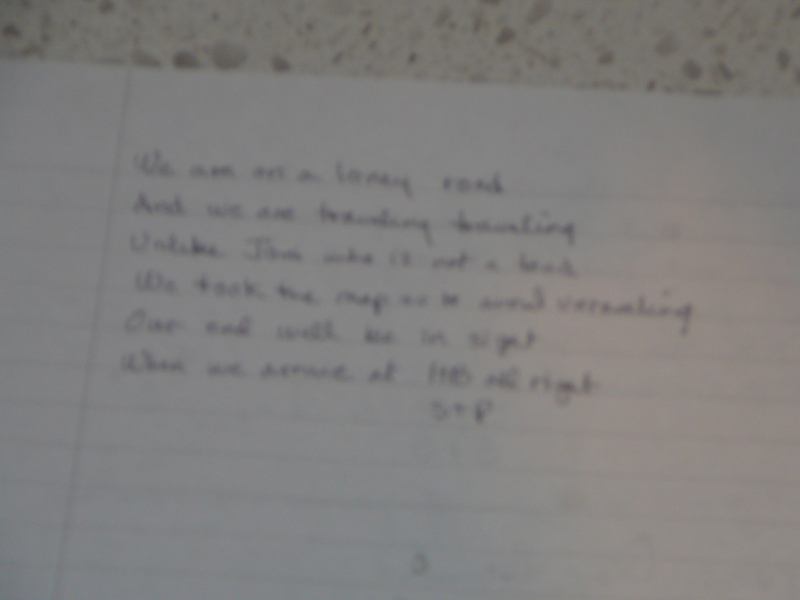 We are on a loney road
And we are traveling traveling
Unlike Jane who is not a
We took the map so
Our end will be in sight
When we arrive at all right